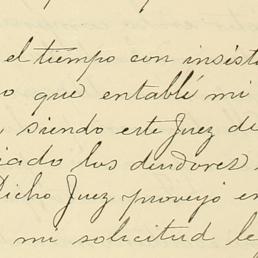 el tiempo con insist
o que entablé mi
siendo este Juez de
iado los deudores
Dicho Juez proveyó en
mi solicitud le